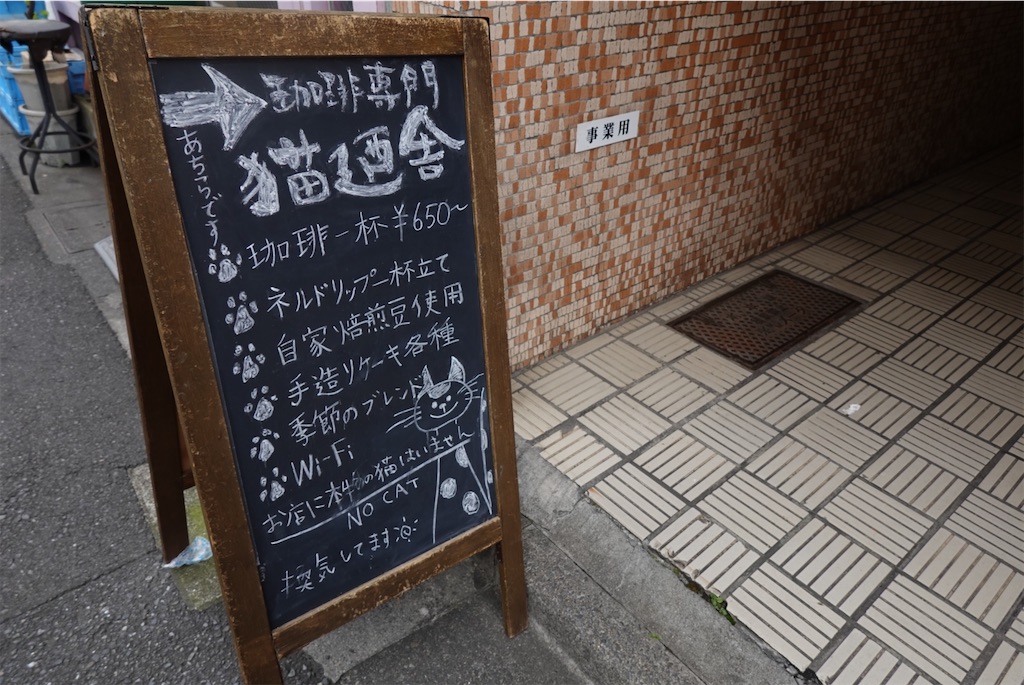 珈琲専門
猫廼舎
あちらです
珈琲一杯¥650～
ネルドリップ一杯立て
自家焙煎豆使用
手造りケーキ各種
季節のブレンド
Wi-Fi
お店に本物の猫はいません
NO CAT
換気してます
事業用